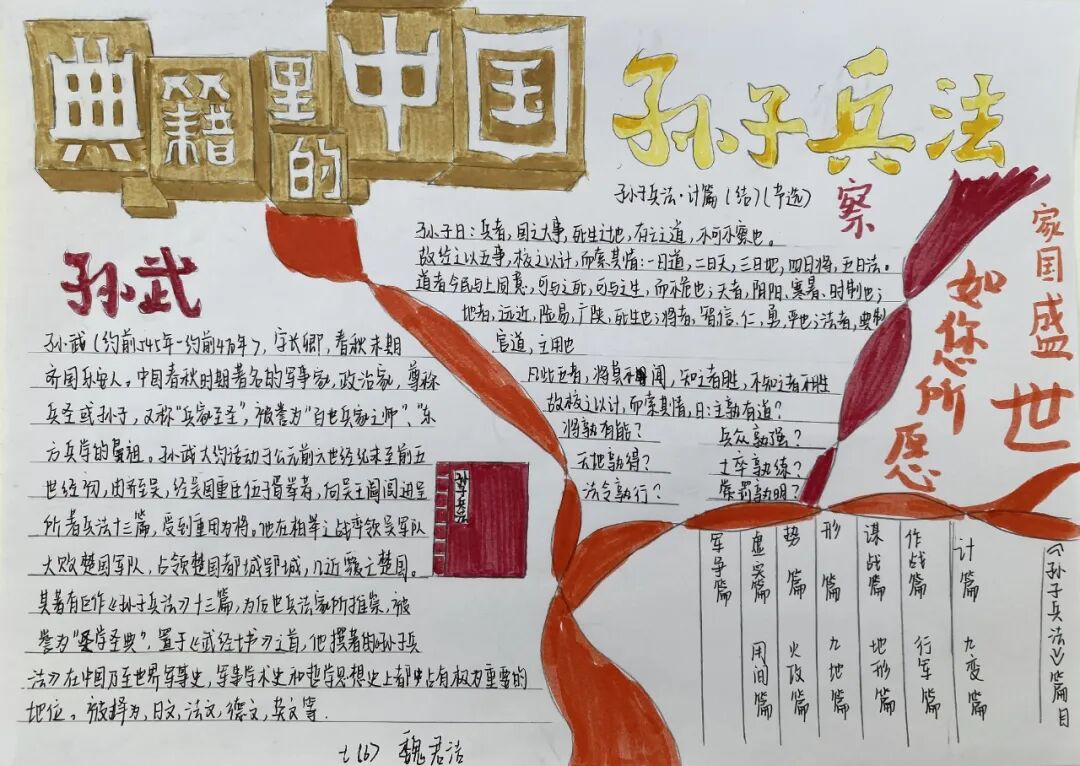 典籍里的中国
孙子兵法
孙子兵法·计篇(结)(节选)
孙子曰：兵者，国之大事，死生之地，存亡之道，不可不察也。
故经之以五事，校之以计，而索其情：一曰道，二曰天，三曰地，四曰将，五曰法。
道者令民与上同意，可与之死，可与之生，而不危也；天者，阴阳、寒暑、时制也；
地者，远近，险易，广陕，死生也；将者，智信，仁，勇，严也；法者，曲制
官道，主用也
凡此五者，将莫不闻，知之者胜，不知之者不胜
故校之以计，而索其情，曰：主孰有道？
将孰有能？ 兵众孰强？
天地孰得？ 士卒孰练？
法令孰行？ 赏罚孰明？
察
家国盛世
如您所愿
孙武
孙武（约前545年-约前470年），字长卿，春秋末期
齐国乐安人。中国春秋时期著名的军事家，政治家，尊称
兵圣或孙子，又称"兵家至圣"，被誉为"百世兵家之师"、"东
方兵学的鼻祖。孙武大约活动于公元前六世纪末至前五
世纪初，由齐至吴，经吴国重臣伍子胥举者，向吴王阖闾进呈
所著兵法十三篇，受到重用为将。他在柏举之战率领吴军队
大败楚国军队，占领楚国都城郢城，几近覆亡楚国。
其著有巨作《孙子兵法》十三篇，为后世兵法家所推崇，被
誉为"兵学圣典"，置于《武经七书》之首，他撰著的《孙子兵
法》在中国乃至世界军事史，军事学术史和哲学思想史上都占有极为重要的
地位。被译为，日文，法文，德文，英文等.
孙子兵法
《孙子兵法》篇目
计篇 九变篇
作战篇 行军篇
谋战篇 地形篇
形篇 九地篇
势篇 火攻篇
虚实篇 用间篇
军争篇
七(6) 魏君洁